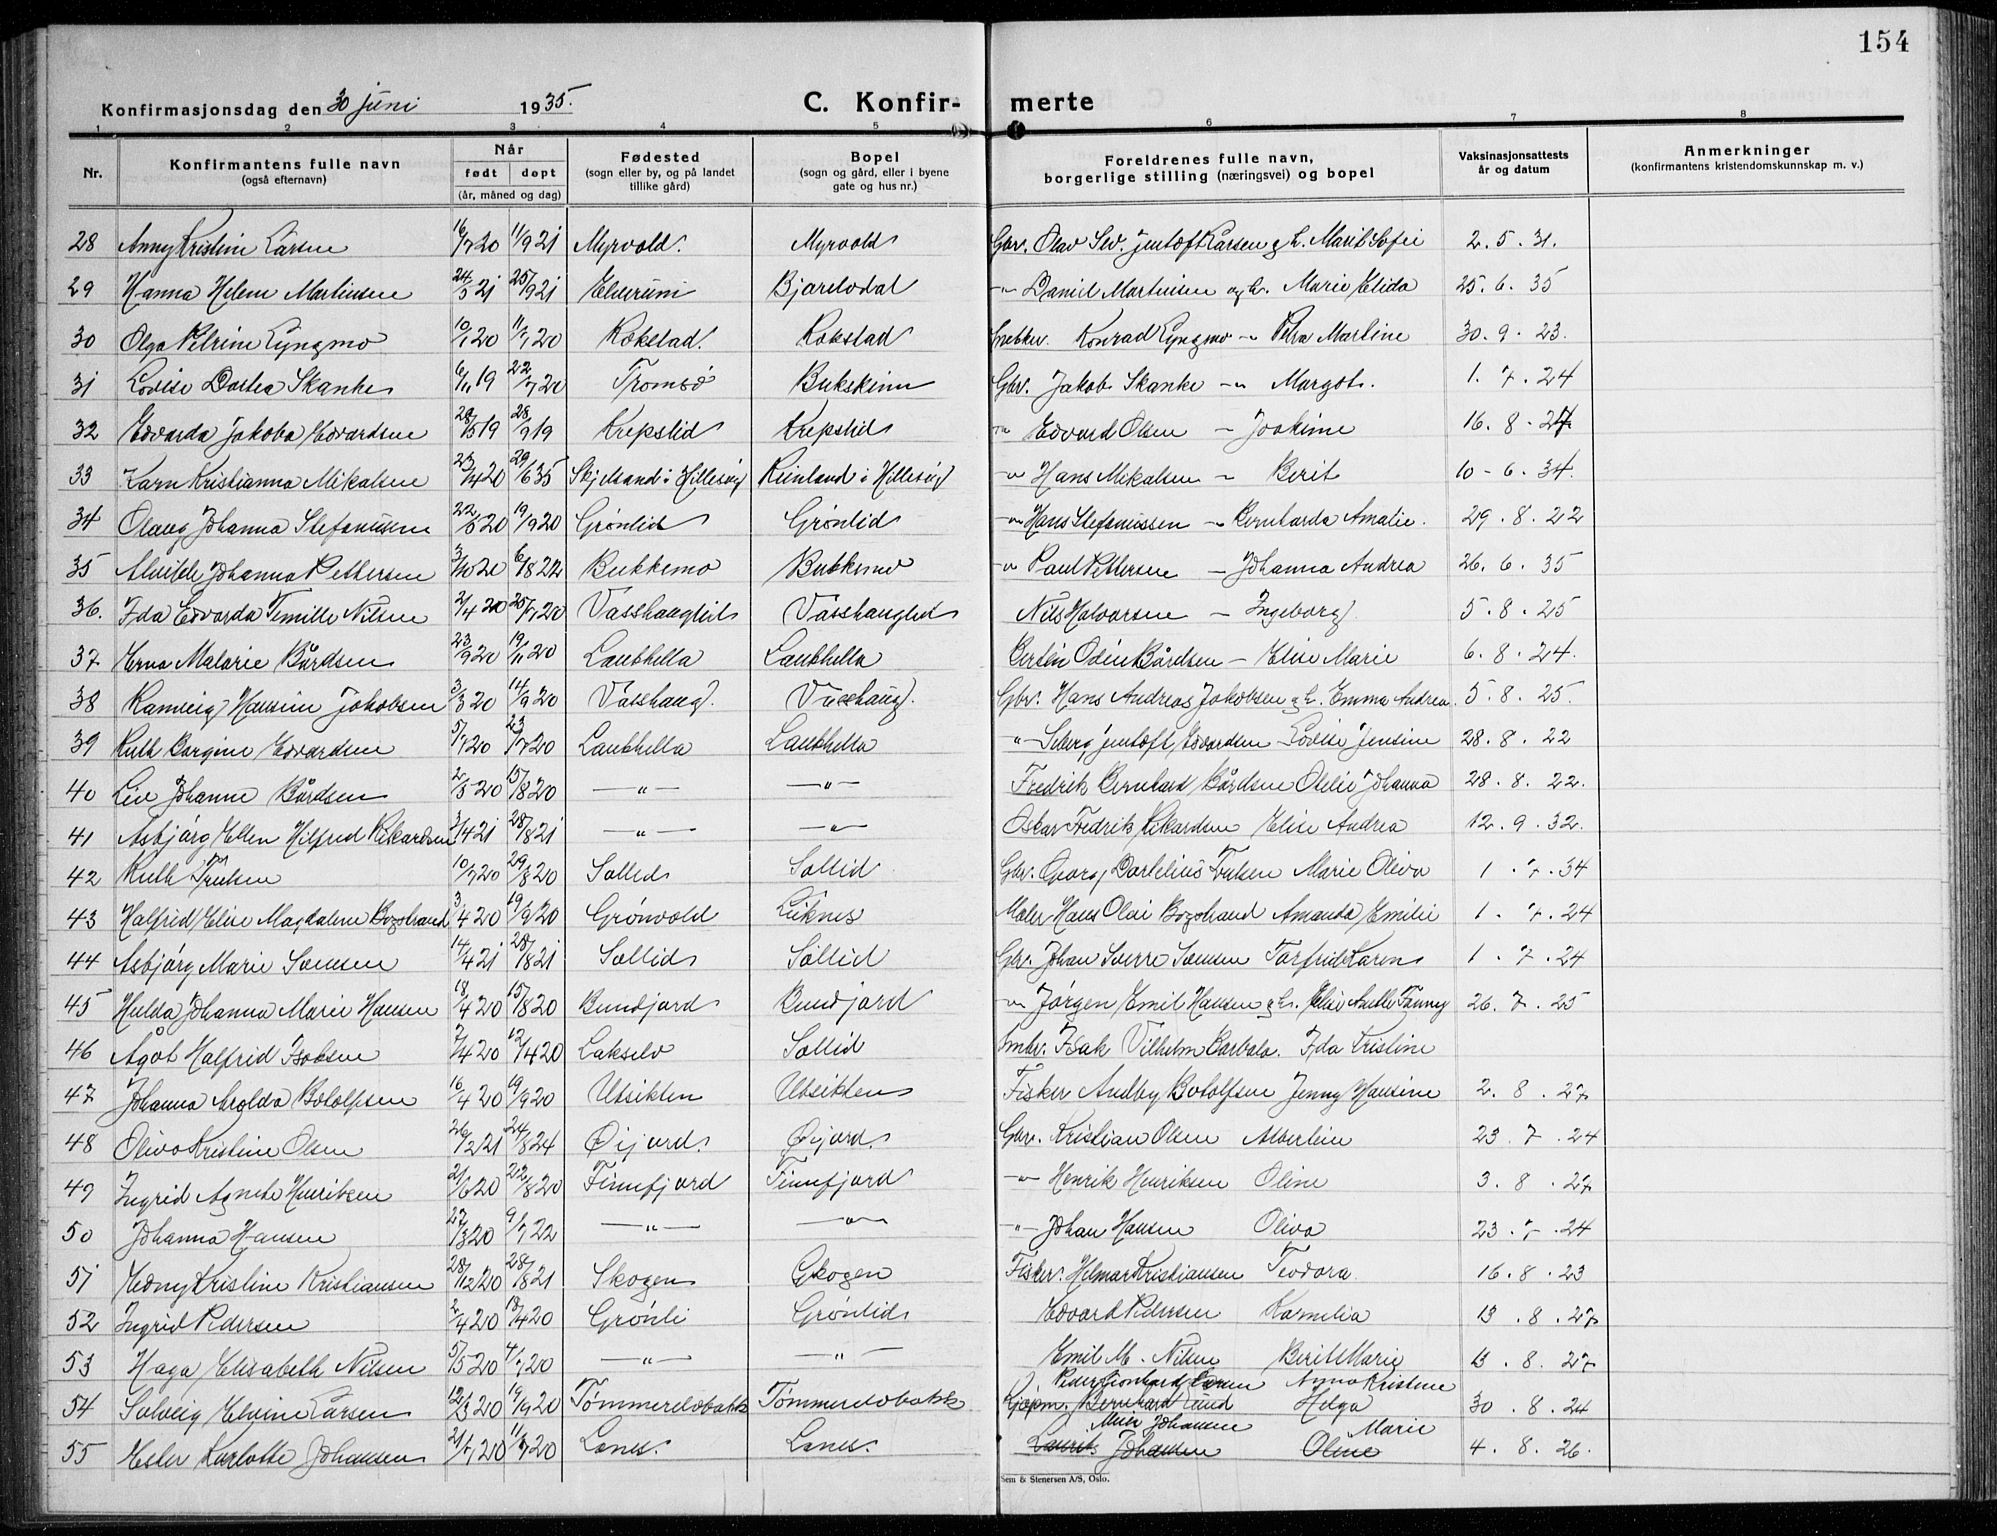 154
Konfirmasjonsdag den 30 juni 1935.
C. Konfir- merte
1 2 3 4 5 6 7 8
Nr. Konfirmantens fulle navn (også efternavn) Når født døpt (år, måned og dag) Fødested (sogn eller by, og på landet tillike gård) Bopel (sogn og gård, eller i byene gate og hus nr.) Foreldrenes fulle navn, borgerlige stilling (næringsvei) og bopel Vaksinasjonsattests år og datum Anmerkninger (konfirmantens kristendomskunnskap m. v.)
28 Anny Kristine Larsen 16/7 20 11/9 21 Myrvold Myrvold Gbr. Olav Sev. Jentoft Larsen og h. Marit Sofie 2. 5. 31.
29 Hanna Helene Martinsen 24/5 21 25/9 21 Elverum Bjorelvdal -"- Daniel Martinsen og h. Marie Elida 25. 6. 35
30 Olga Petrine Lyngmo 10/1 20 11/7 20 Kokstad Kokstad Snekker Konrad Lyngmo -"- Petra Martine 30. 9. 23.
31 Lovise Dortea Skanke 6/11 19 22/7 20 Tromsø Bukskinn Gbr. Jakob Skanke -"- Margot 1. 7. 24
32 Edvarda Jakoba Edvardsen 28/5 19 28/9 19 Krepslid Krepslid -"- Edvard Olsen - Joakime 16. 8. 24
33 Karn Kristianna Mikalsen 23/4 20 29/6 35 Skjelsand i Hillesøy Reinland i Hillesøy -"- Hans Mikalsen - Berit 10-6. 34.
34 Olaug Johanna Stefanussen 22/6 20 19/9 20 Grönlid Grönlid -"- Hans Stefanussen - Bernharda Amalie. 29. 8. 22
35 Alvilde Johanna Pettersen 3/10 20 6/8 22 Bukkemo Bukkemo -"- Paul Pettersen - Johanna Andrea 26. 6. 35
36. Ida Edvarda Temille Nilsen 2/4 20 25/7 20 Vasshauglid Vasshauglid Nils Halvorsen - Ingeborg 5. 8. 25
37 Erna Malorie Bårdsen 23/9 20 19/11 20 Laukhella Laukhella Bertin Odin Bårdsen - Elise Marie 6. 8. 24.
38 Ranveig Hansine Jakobsen 3/3 20 14/9 20 Vasshaug. Vasshaug. Gbr. Hans Andreas Jakobsen og h. Emma Andrea 5. 8. 25.
39 Ruth Borgine Edvardsen 5/7 20 23/7 20 Laukhella Laukhella -"- Seberg Jentoft Edvardsen Lovise Jensine 28. 8. 22
40 Liv Johanne Bårdsen 2/5 20 15/8 20 -"- -"- Fredrik Bernhard Bårdsen Otelie Johanna 28. 8. 22.
41 Asbjörg Ellen Hilfred Rikardsen 3/4 21 28/8 21 -"- -"- Oskar Fredrik Rikardsen Elise Andrea 12. 9. 32.
42 Ruth Trulsen 10/7 20 29/8 20 Sollid Sollid Gbr. Georg Dortelius Trulsen Marie Oliva 1. 7. 34
43 Halfrid Elise Magdalene Bogstrand 3/4 20 19/9 20 Grönvold Leiknes Maler Hans Olai Bogstrand Amanda Emilie 1. 7. 24
44 Asbjörg Marie Sœnsen 14/4 21 28/8 21 Sollid Sollid Gbr. Johan Sverre Sœnsen Torfrid Karen 1. 7. 24
45 Hulda Johanna Marie Hansen 18/4 20 15/8 20 Bundjord Bundjord -"- Jørgen Emil Hansen og h. Elise Anette Fanny 26. 7. 25
46 Ågot Halfrid Isaksen 7/4 20 12/4 20 Lakselv Sollid Smbr. Isak Vilhelm Barbala. Ida Kristine
47 Johanna Arolda Bolofsen 16/4 20 19/9 20 Utsikten Utsikten Fisker Andby Botolfsen Jenny Hansine 2. 8. 27
48 Oliva Kristine Olsen 26/2 21 24/8 24 Øijord Øijord Gbr. Kristian Olsen Albertine 23. 7. 24
49 Ingrid Agnete Henriksen 21/6 20 22/8 20 Finnfjord Finnfjord -"- Henrik Henriksen Oline 3. 8. 27
50 Johanna Hansen 27/3 20 9/7 22 -"- -"- -"- Johan Hansen Oliva 23. 7. 24
51 Edny Kristine Kristiansen 28/12 20 28/8 21 Skogen Skogen Fisker Hilmar Kristiansen Teodora 16. 8. 23
52 Ingrid Pedersen 2/4 20 18/4 20 Grönli Grönlid Edvard Pedersen Kamilia 13. 8. 27
53 Haga Elisabeth Nilsen 5/5 20 4/7 20 -"- -"- Emil M. Nilsen Berit Marie 13. 8. 27
54 Solveig Elvine Larsen 12/3 20 19/9 20 Tømmerelvbakk Tømmerelvbakk Peder Leonhard Larsen Anna Kristine
Kjøpm. Bernhard Lund Helga 30. 8. 24
55 Ester Karlotte Johansen 21/7 20 11/9 20 Lanes Lanes. Meier Johansen Marie
Laurits Johansen Oline 4. 8. 26.
Sem & Stenersen A/S, Oslo.